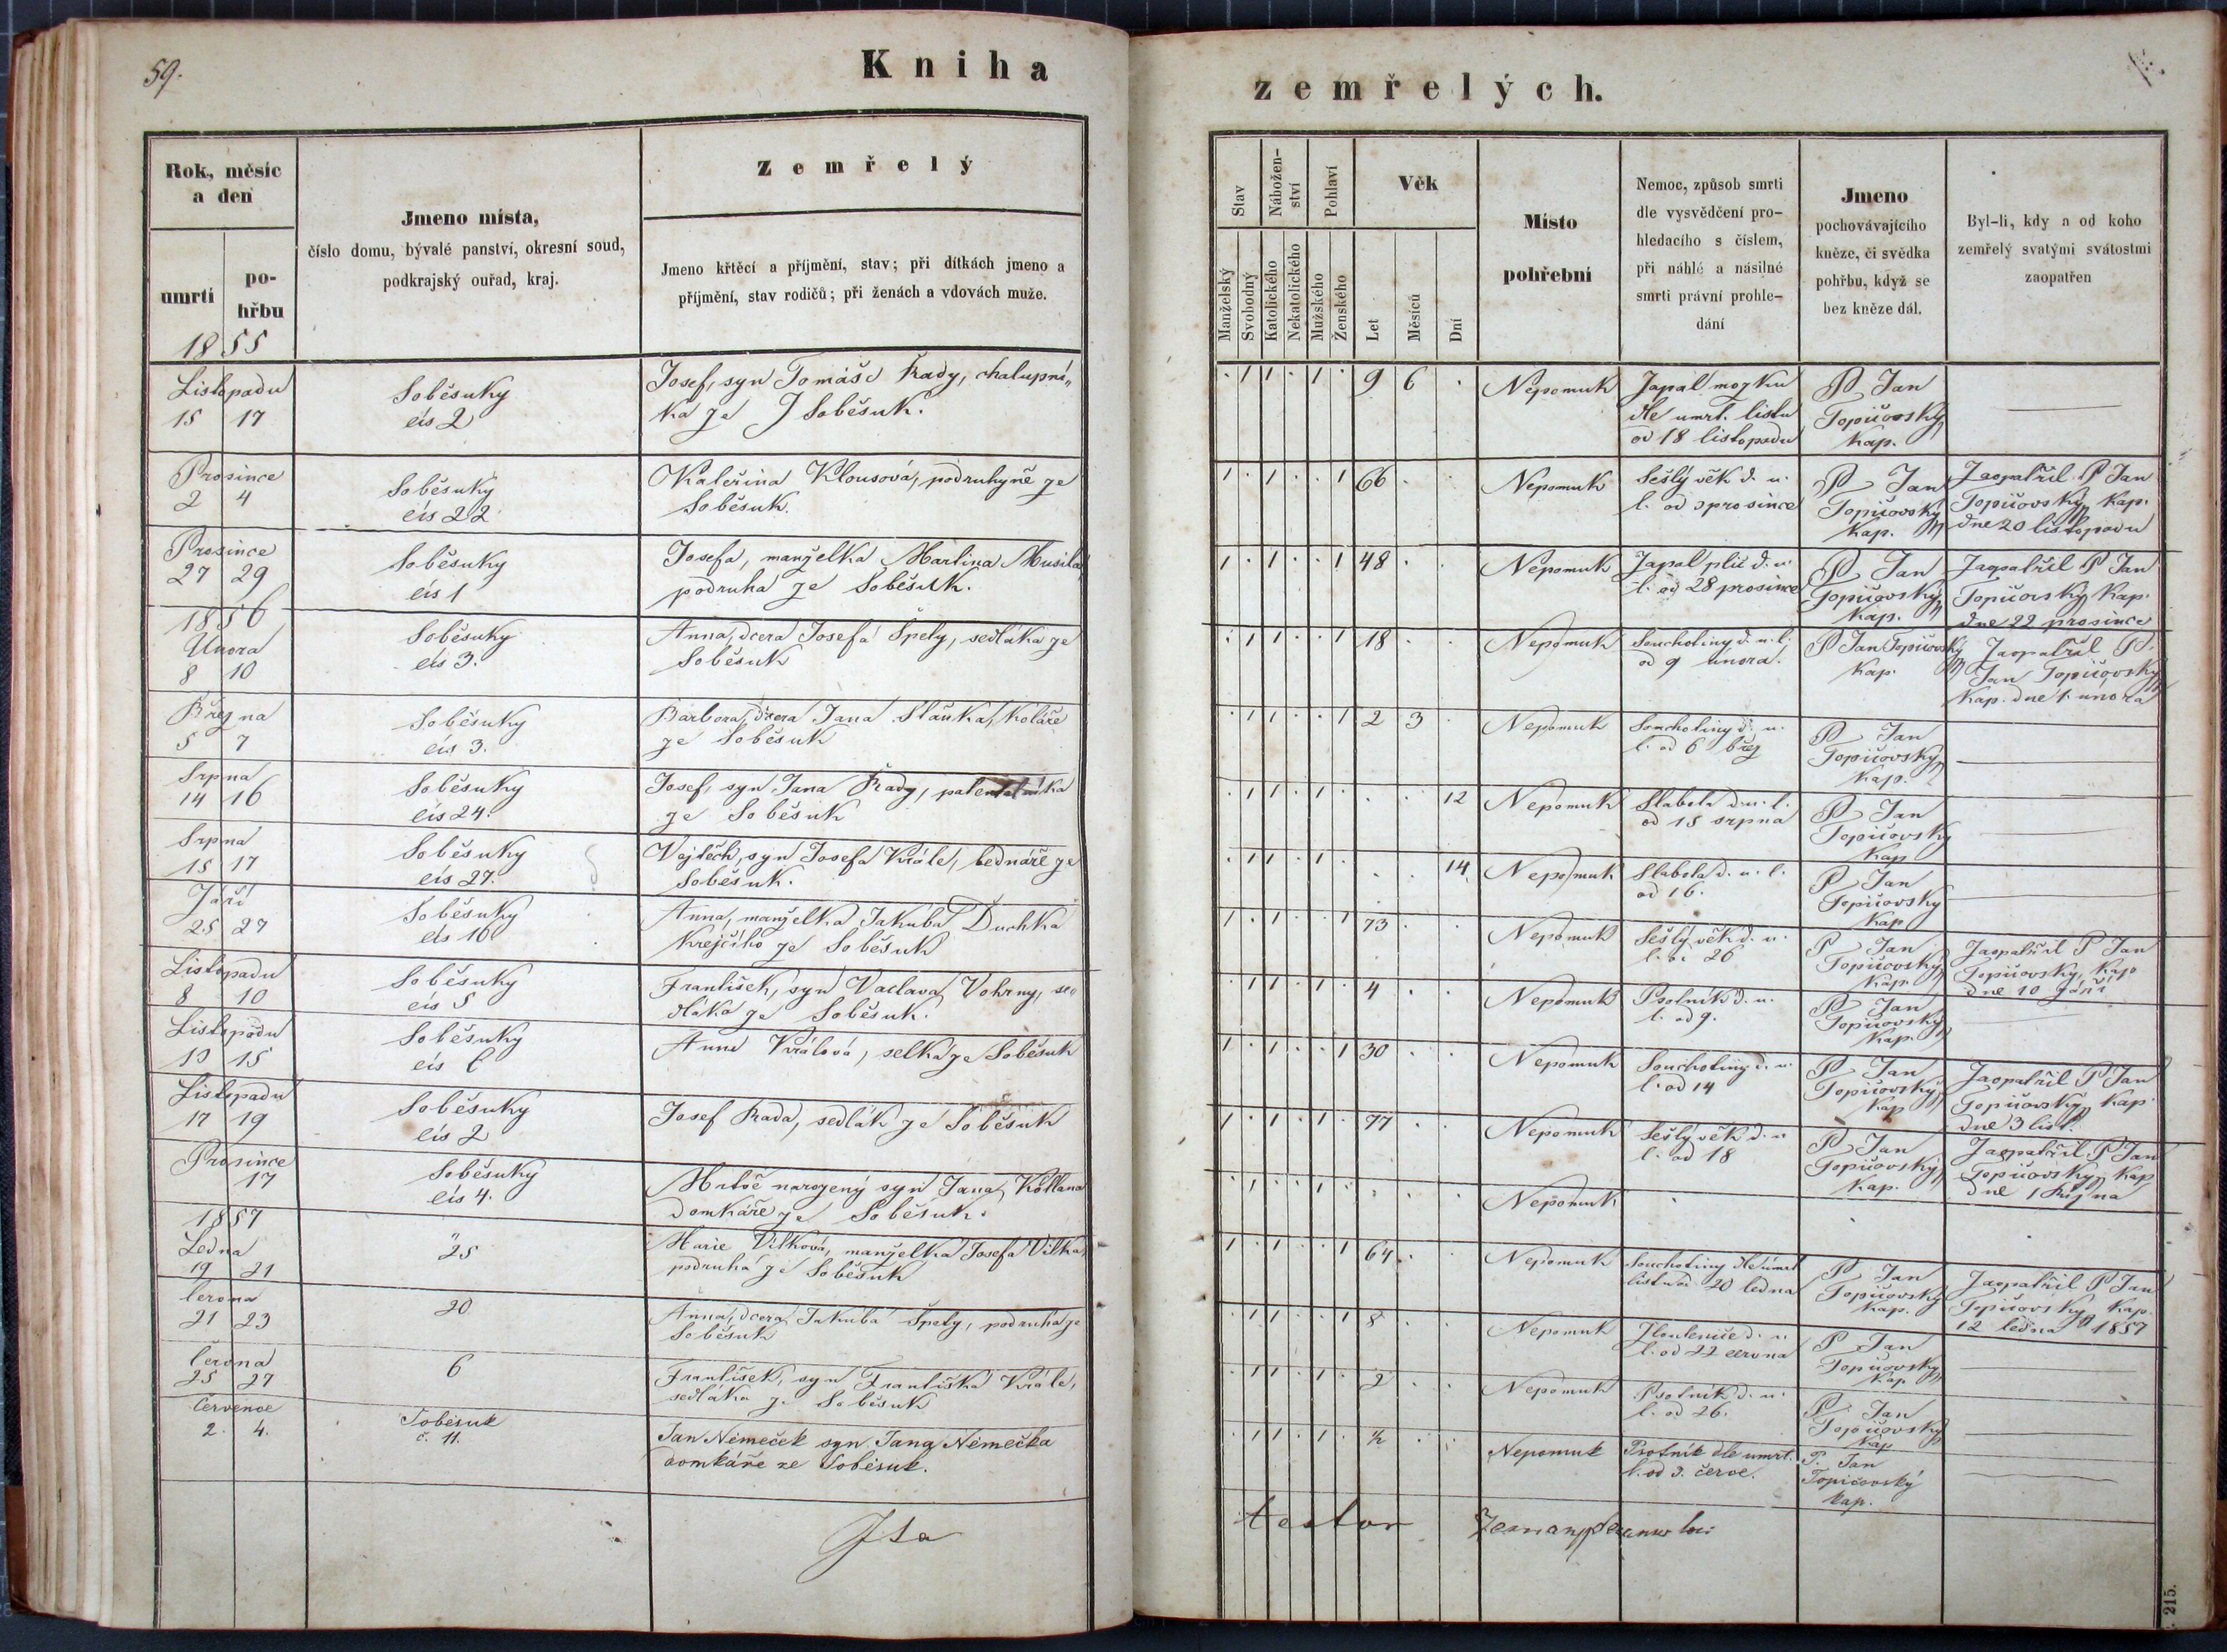 59.
Kniha
zemřelých.
Rok, měsíc
a den
umrtí
po-
hřbu
Jmeno místa,
číslo domu, bývalé panství, okresní soud,
podkrajský ouřad, kraj.
Zemřelý
Jmeno křtěcí a příjmění, stav; při dítkách jmeno a
příjmění, stav rodičů; při ženách a vdovách muže.
Stav
Nábožen-
ství
Pohlaví
Věk
Manželský
Svobodný
Katolického
Nekatolického
Mužského
Ženského
Let
Měsíců
Dní
Místo
pohřební
Nemoc, způsob smrti
dle vysvědčení pro-
hledacího s číslem,
při náhlé a násilné
smrti právní prohle-
dání
Jmeno
pochovávajícího
kněze, či svědka
pohřbu, když se
bez kněze dál.
Byl-li, kdy a od koho
zemřelý svatými svátostmi
zaopatřen
1855
Listopadu
15 17
Soběsuky
čís 2
Josef, syn Tomáše Rady, chalupní„
ka ze Soběsuk.
· 1 1 · 1 · 9 6 ·
Nepomuk
Zapal mozku
dle umrt. listu
od 18 listopadu
P Jan
Topičovský
Kap.
Prosince
2 4
Soběsuky
čís 22
Kateřina Klousová, podruhyně ze
Soběsuk.
1 · 1 · · 1 66 · ·
Nepomuk
Sešlý věk d. u.
l. od 3 prosince
P Jan
Topičovský
Kap.
Zaopatřil P Jan
Topičovský Kap.
dne 20 listopadu
Prosince
27 29
Soběsuky
čís 1
Josefa, manželka Martina Musila,
podruha ze Soběsuk.
1 · 1 · · 1 48 · ·
Nepomuk
Zapal plic d. u.
l. od 28 prosince
P Jan
Topičovský
Kap.
Zaopatřil P Jan
Topičovský Kap.
dne 22 prosince
1856
Unora
8 10
Soběsuky
čís 3.
Anna, dcera Josefa Špety, sedláka ze
Soběsuk
· 1 1 · · 1 18 · ·
Nepomuk
Souchotiny d. u. l.
od 9 unora.
P Jan Topičovský
Kap.
Zaopatřil P.
Jan Topičovský
Kap. dne 1. unora
Března
5 7
Soběsuky
čís 3.
Barbora, dcera Jana Slaňka, koláře
ze Soběsuk
· 1 1 · · 1 2 3 ·
Nepomuk
Souchotiny d. u.
l. od 6 břez
P Jan
Topičovský
Kap.
Srpna
14 16
Soběsuky
čís 24.
Josef, syn Jana Rady, patentalníka
ze Soběsuk
· 1 1 · 1 · · · 12
Nepomuk
Slabota d. u. l.
od 15 srpna
P Jan
Topičovský
Kap
Srpna
15 17
Soběsuky
čís 27.
Vojtěch, syn Josefa Krále, bednáře ze
Soběsuk.
· 1 1 · 1 · · · 14
Nepomuk
Slabota d. u. l.
od 16.
P Jan
Topičovský
Kap
Září
25 27
Soběsuky
čís 10
Anna, manželka Jakuba Duchka
krejčího ze Soběsuk
1 · 1 · · 1 73 · ·
Nepomuk
Sešlý věk d. u.
l. od 26
P Jan
Topičovský
Kap.
Zaopatřil P Jan
Topičovský, Kap
dne 10 září
Listopadu
8 10
Soběsuky
čís 5
František, syn Vaclava Vohrny, se„
dláka ze Soběsuk.
· 1 1 · 1 · 4 · ·
Nepomuk
Psotník d. u.
l. od 9.
P Jan
Topičovský
Kap.
Listopadu
13 15
Soběsuky
čís 6
Anna Králová, selka ze Soběsuk
1 · 1 · · 1 30 · ·
Nepomuk
Souchotiny d. u.
l. od 14
P Jan
Topičovský
Kap
Zaopatřil P Jan
Topičovský Kap
dne 3 list.
Listopadu
17 19
Soběsuky
čís 2
Josef Rada, sedlák ze Soběsuk
1 · 1 · 1 · 77 · ·
Nepomuk
Sešlý věk d. u
l. od 18
P Jan
Topičovský
Kap.
Zaopatřil P Jan
Topičovský Kap
dne 1 Října
Prosince
17
Soběsuky
čís 4.
Mrtvě narozený syn Jana Kottana
domkáře ze Soběsuk.
Nepomuk
1857
Ledna
19 21
"
25
Marie Vítková, manželka Josefa Vítka,
podruha ze Soběsuk
1 · 1 · · 1 64 · ·
Nepomuk
Souchotiny dle úmrt
listu od 20 ledna
P Jan
Topičovský
Kap.
Zaopatřil P Jan
Topičovský Kap.
12 ledna 1857
června
21 23
20
Anna, dcera Jakuba Špety, podruha ze
Soběsuk
· 1 1 · · 1 8 · ·
Nepomuk
d. u.
l. od 22 června
P Jan
Topičovský
Kap
června
25 27
6
František, syn Františka Krále,
sedláka ze Soběsuk
· 1 1 · 1 · 2 · ·
Nepomuk
Psotník d. u.
l. od 26.
P Jan
Topičovský
Kap
července
2. 4.
Soběsuk
č. 11.
Jan Němeček syn Jana Němečka
domkáře ze Soběsuk.
· 1 1 · 1 · ½ · ·
Nepomuk
Psotník dle umrt.
l. od 3. červe.
P. Jan
Topičovský
kap.
Ita
testor
215.